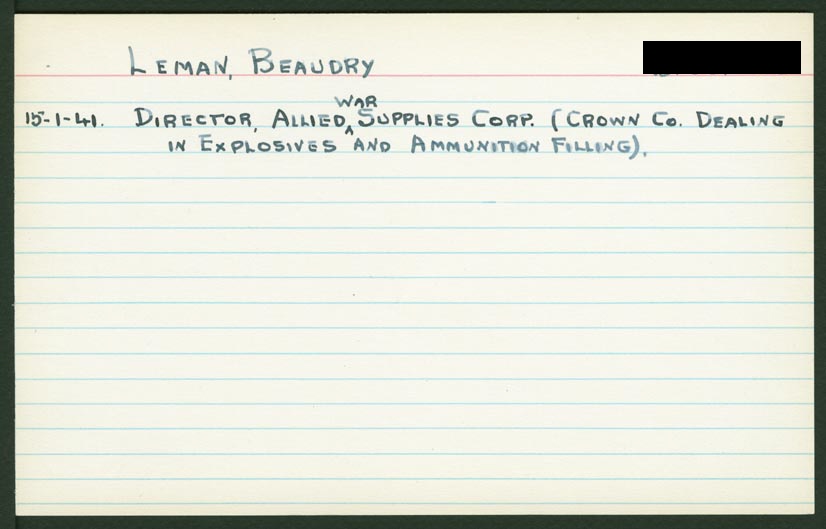 LEMAN, BEAUDRY
15-1-41. DIRECTOR, ALLIED WAR SUPPLIES CORP. (CROWN CO. DEALING
IN EXPLOSIVES AND AMMUNITION FILLING).